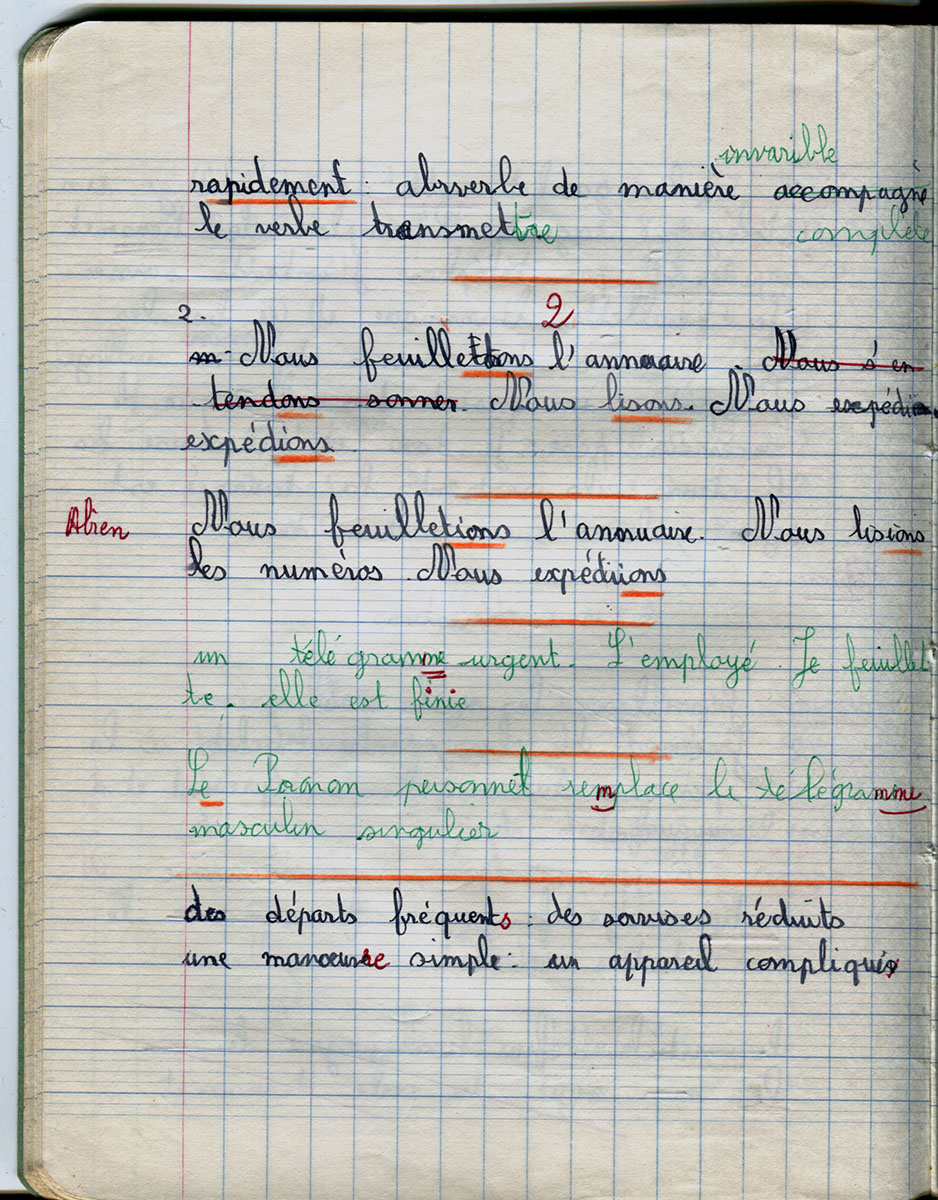 invarible
rapidement : abverbe de manière accompagne
le verbe transmettre complète
2.
2
m- Nous feuillettons l'annuaire. Nous s'en
tendons sonner. Nous lisons. Nous expédi
expédions
Abien Nous feuilletions l'annuaire. Nous lisions
les numéros. Nous expédiions
un télégramme urgent. L'employé. Je feuillet
te. elle est finie
Le Pronon personnel remplace le télégramme
masculin singulier
des départs fréquents : des services réduits
une manoeuvre simple : un appareil compliqué